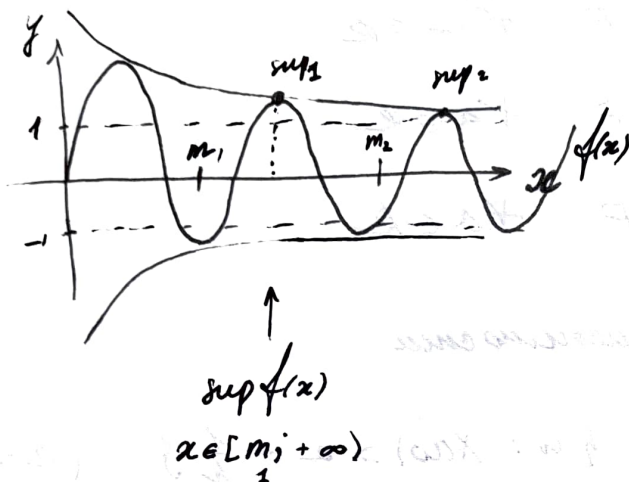 y
sup₁
sup₂
1
m₁
m₂
f(x)
x
-1
sup f(x)
x ∈ [m₁; +∞)